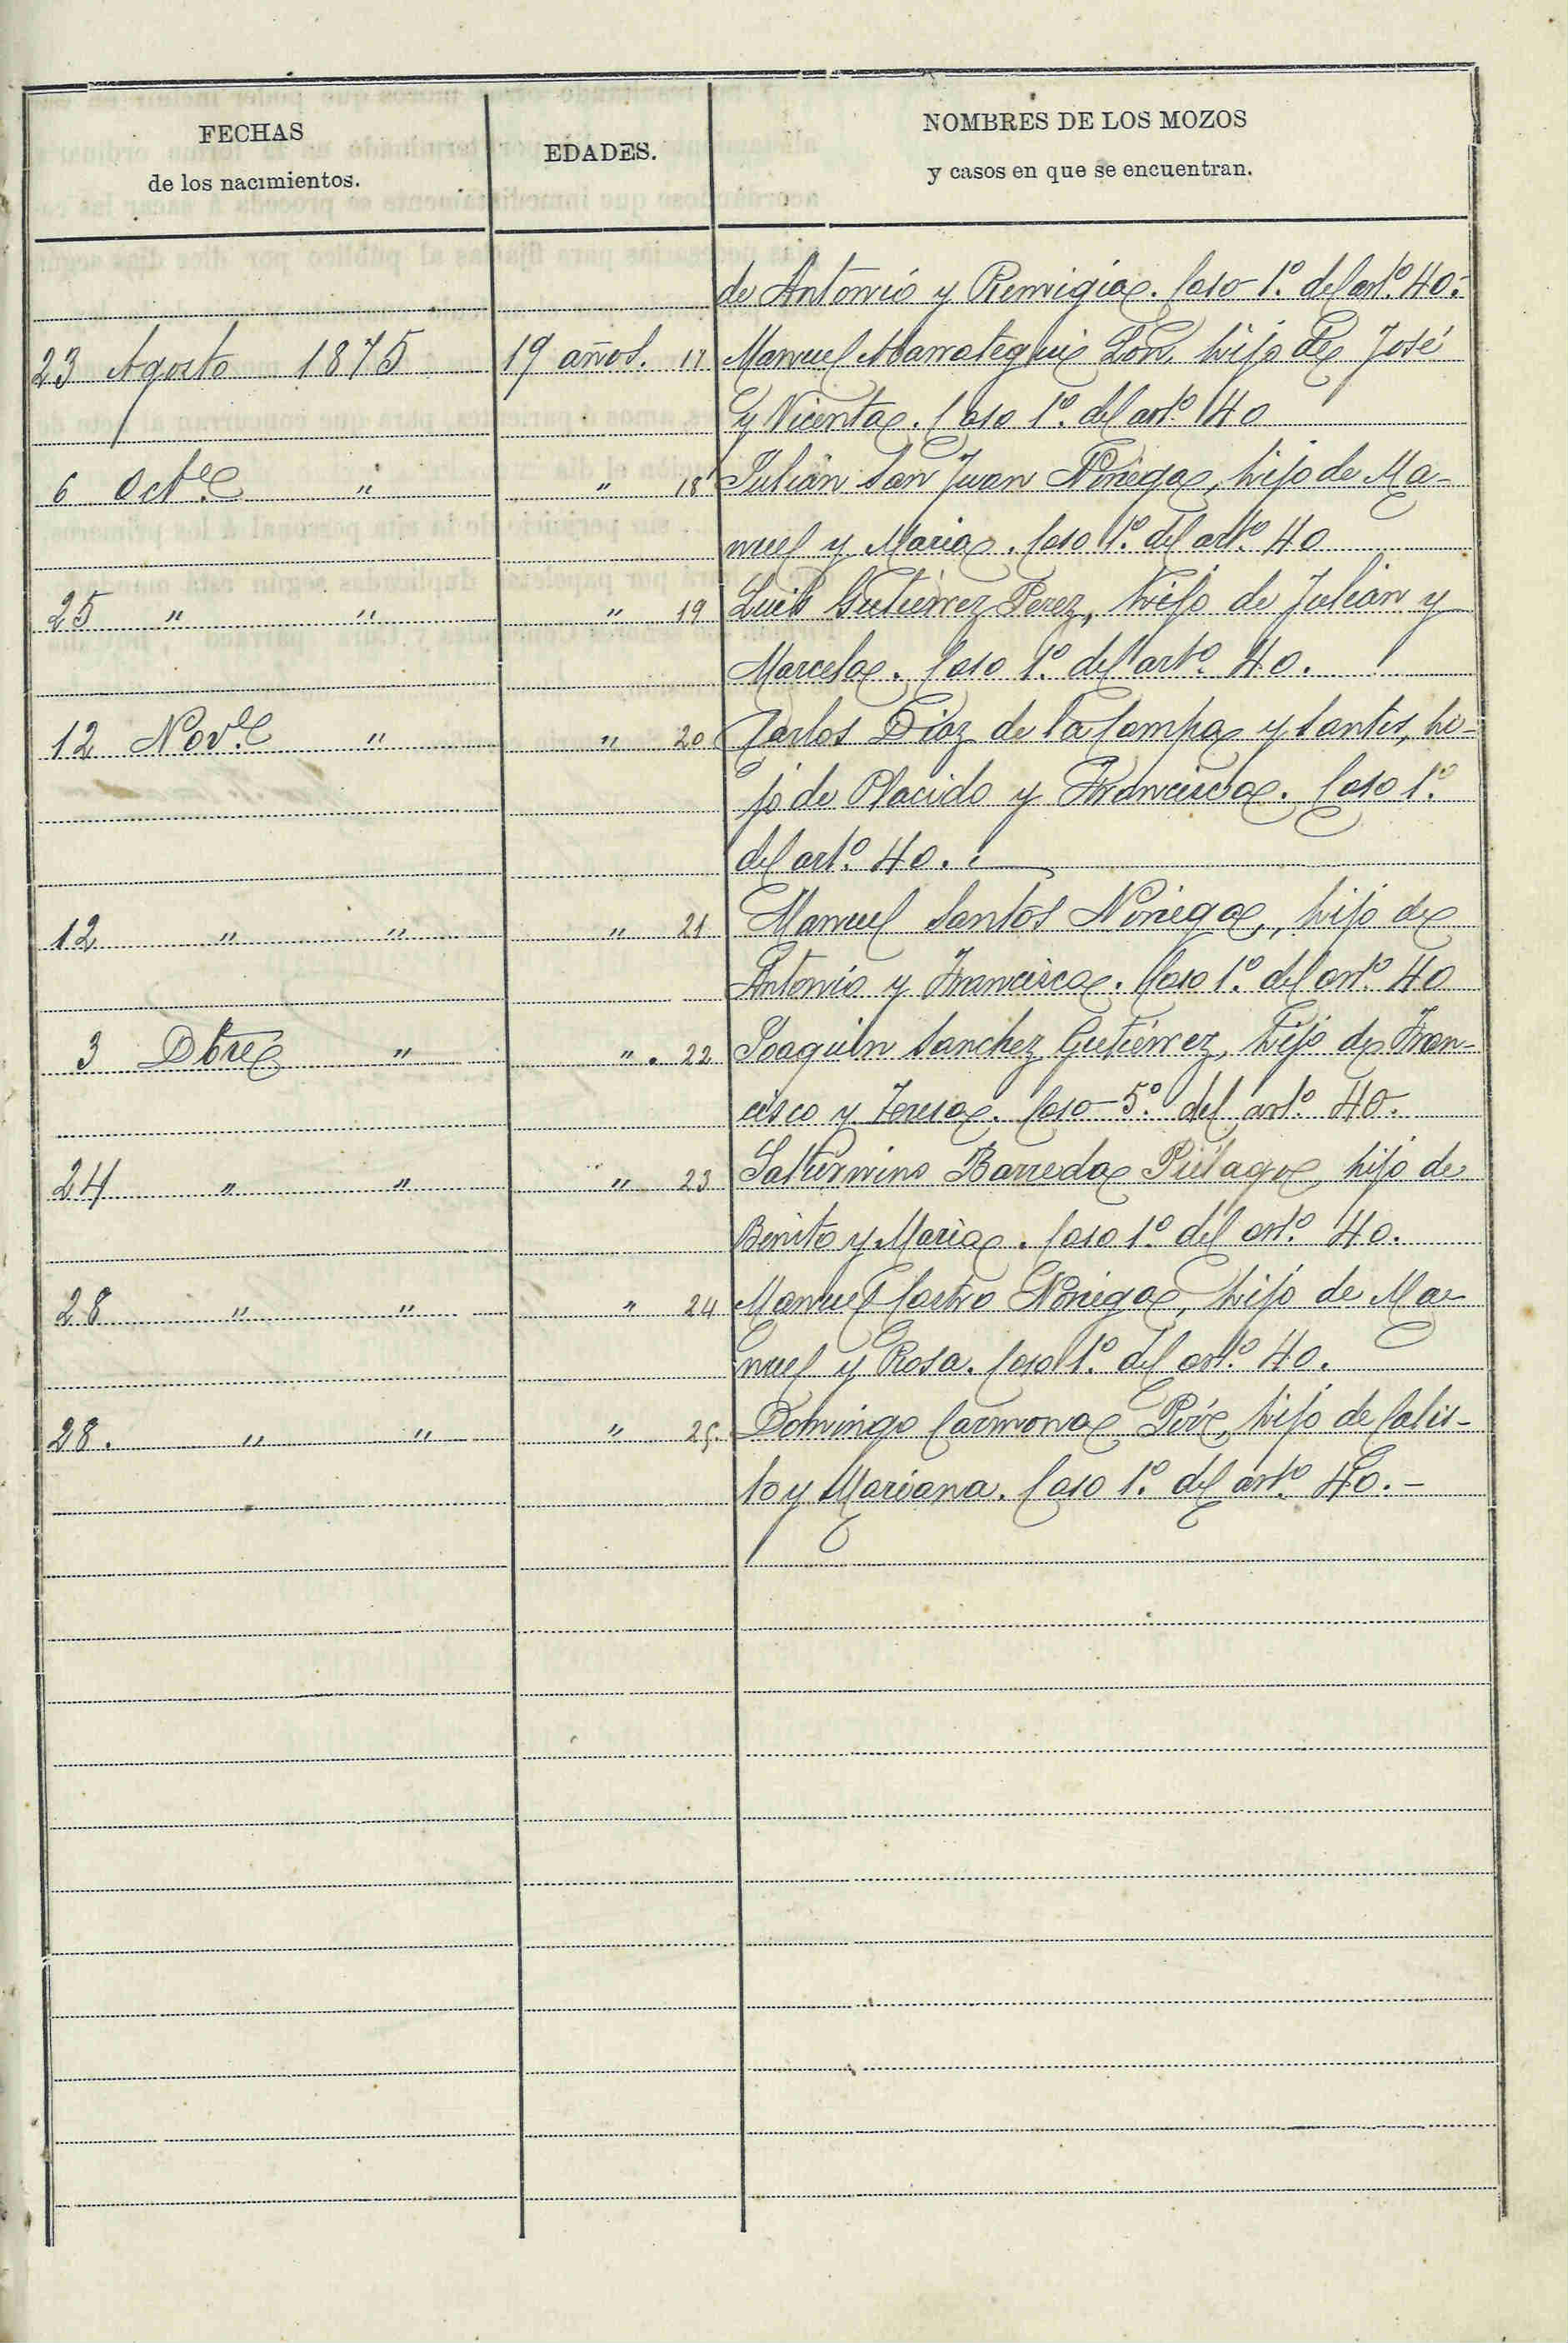 FECHAS
de los nacimientos.
EDADES.
NOMBRES DE LOS MOZOS
y casos en que se encuentran.
de Antonio y Remigia. Caso 1.º del art.º 40.
23 Agosto 1875 19 años. 17 Manuel Marrategui Lon, hijo de José
y Vicenta. Caso 1.º del art.º 40
6 Oct.e " " 18 Julián San Juan Noriega, hijo de Ma-
nuel y Maria. Caso 1.º del art.º 40
25 " " " 19 Luis Gutierrez Perez, hijo de Julián y
Marcela. Caso 1.º del art.º 40.
12 Nov.e " " 20 Carlos Diaz de la Campa y Santos, hi-
jo de Placido y Francisca. Caso 1.º
del art.º 40.
12 " " " 21 Manuel Santos Noriega, hijo de
Antonio y Francisca. Caso 1.º del art.º 40
3 Dbre " ". 22 Joaquin Sanchez Gutiérrez, hijo de Fran-
cisco y Teresa. Caso 5.º del art.º 40.
24 " " " 23 Saturnino Barreda Piélago, hijo de
Benito y Maria. Caso 1.º del art.º 40.
28 " " " 24 Manuel Castro Noriega, hijo de Ma-
nuel y Rosa. Caso 1.º del art.º 40.
28. " " " 25. Domingo Carmona, hijo de Calis-
to y Mariana. Caso 1.º del art.º 40.-